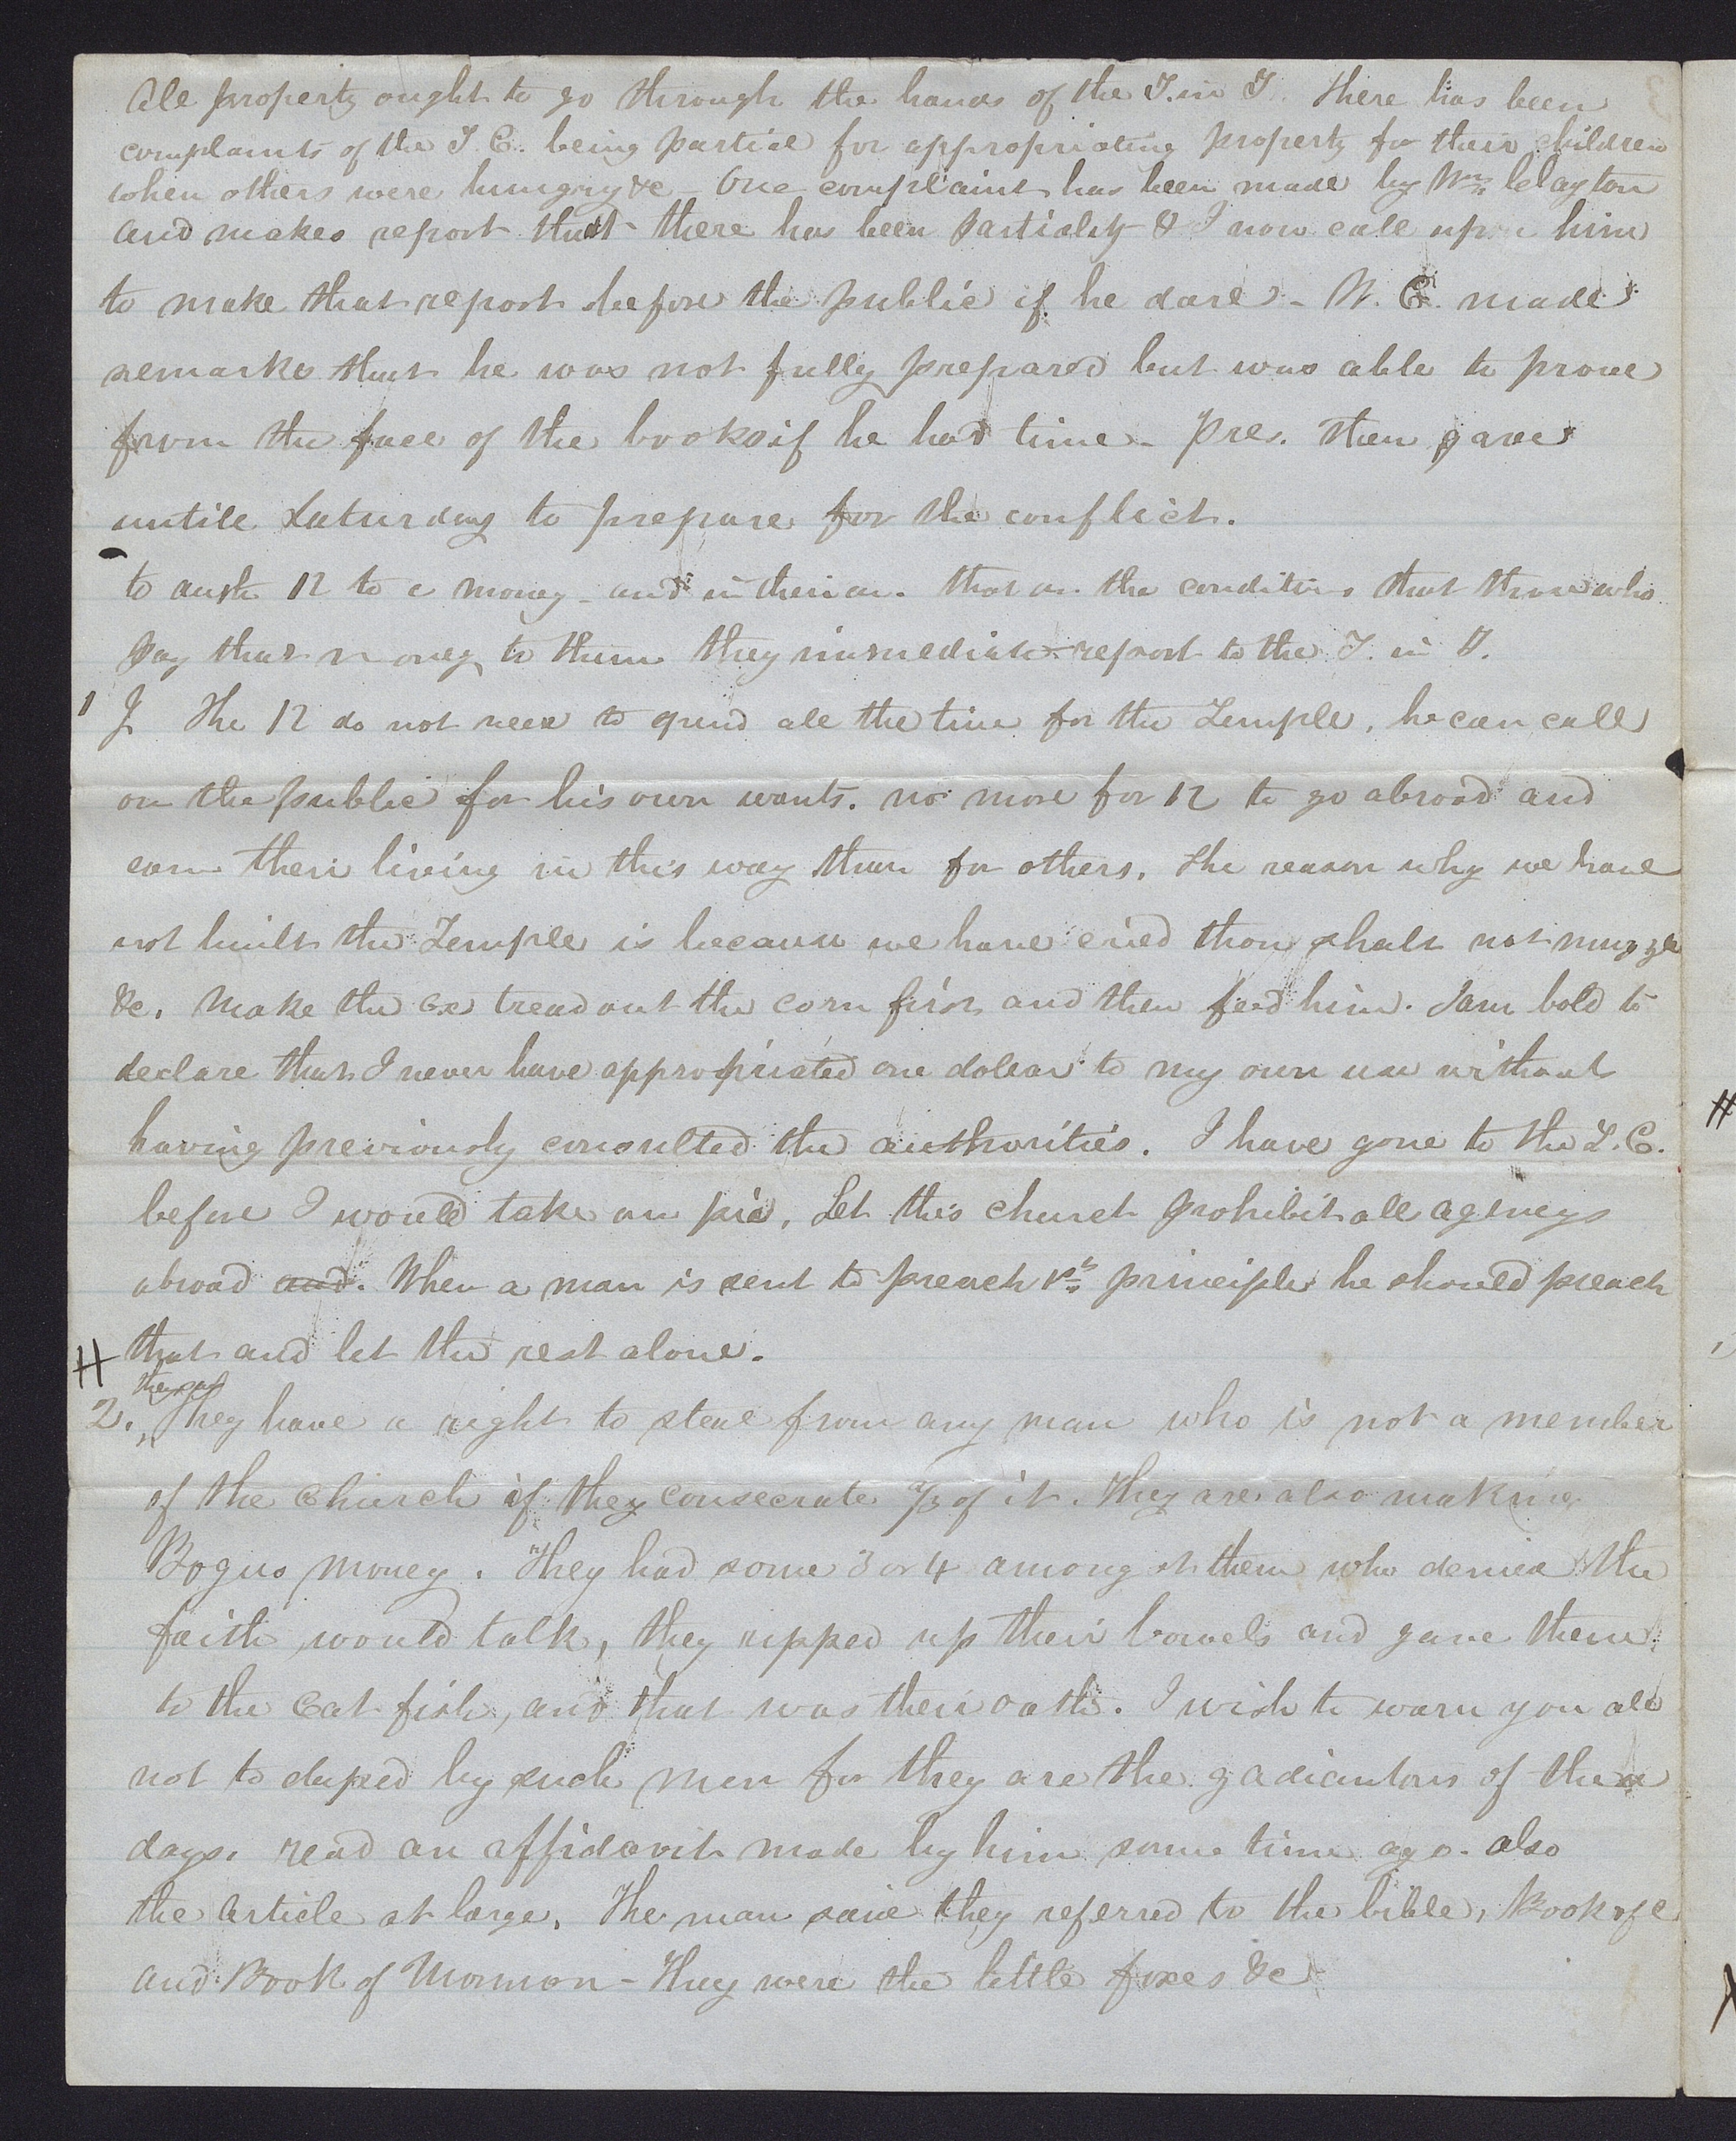 All property ought to go through the hands of the T. in T. There has been
complaints of the T. C. being partial for appropriating property for their children
when others were hungry &c - One complaint has been made by Wm. Clayton
and makes report that there has been partiality & I now call upon him
to make that report before the public if he dare - W. C. made
remarks that he was not fully prepared but was able to prove
from the face of the books if he had time - Pres. then gave
untill Saturday to prepare for the conflict.
to auth 12 to c money - and in their on the conditions that those who
pay that money to them they immediate report to the T. in T.
1 J The 12 do not need to spend all the time for the Temple, he can call
on the public for his own wants. no more for 12 to go abroad and
earn their living in this way than for others. The reason why we have
not built the Temple is because we have cried thou shalt not muzzle
&c. Make the ox tread out the corn first and then feed him. I am bold to
declare that I never have appropriated one dollar to my own use without
having previously consulted the authorities. I have gone to the T. C.
before I would take any pie. Let this church prohibit all agencys
abroad and. When a man is sent to preach 1st principles he should preach
H that and let the rest alone.
they say
2. They have a right to steal from any man who is not a member
of the Church if they consecrate 1/3 of it. They are also making
Bogus money. "They had some 3 or 4 amongst them who denied the
faith would talk, they ripped up their bowels and gave them
to the Cat fish, and that was their oath. I wish to warn you all
not to duped by such men for they are the gadiantons of these
days. read an affidavit made by him some time ago. also
the article at large. The man said they referred to the bible, Book of C
and Book of Mormon - They were the little foxes &c